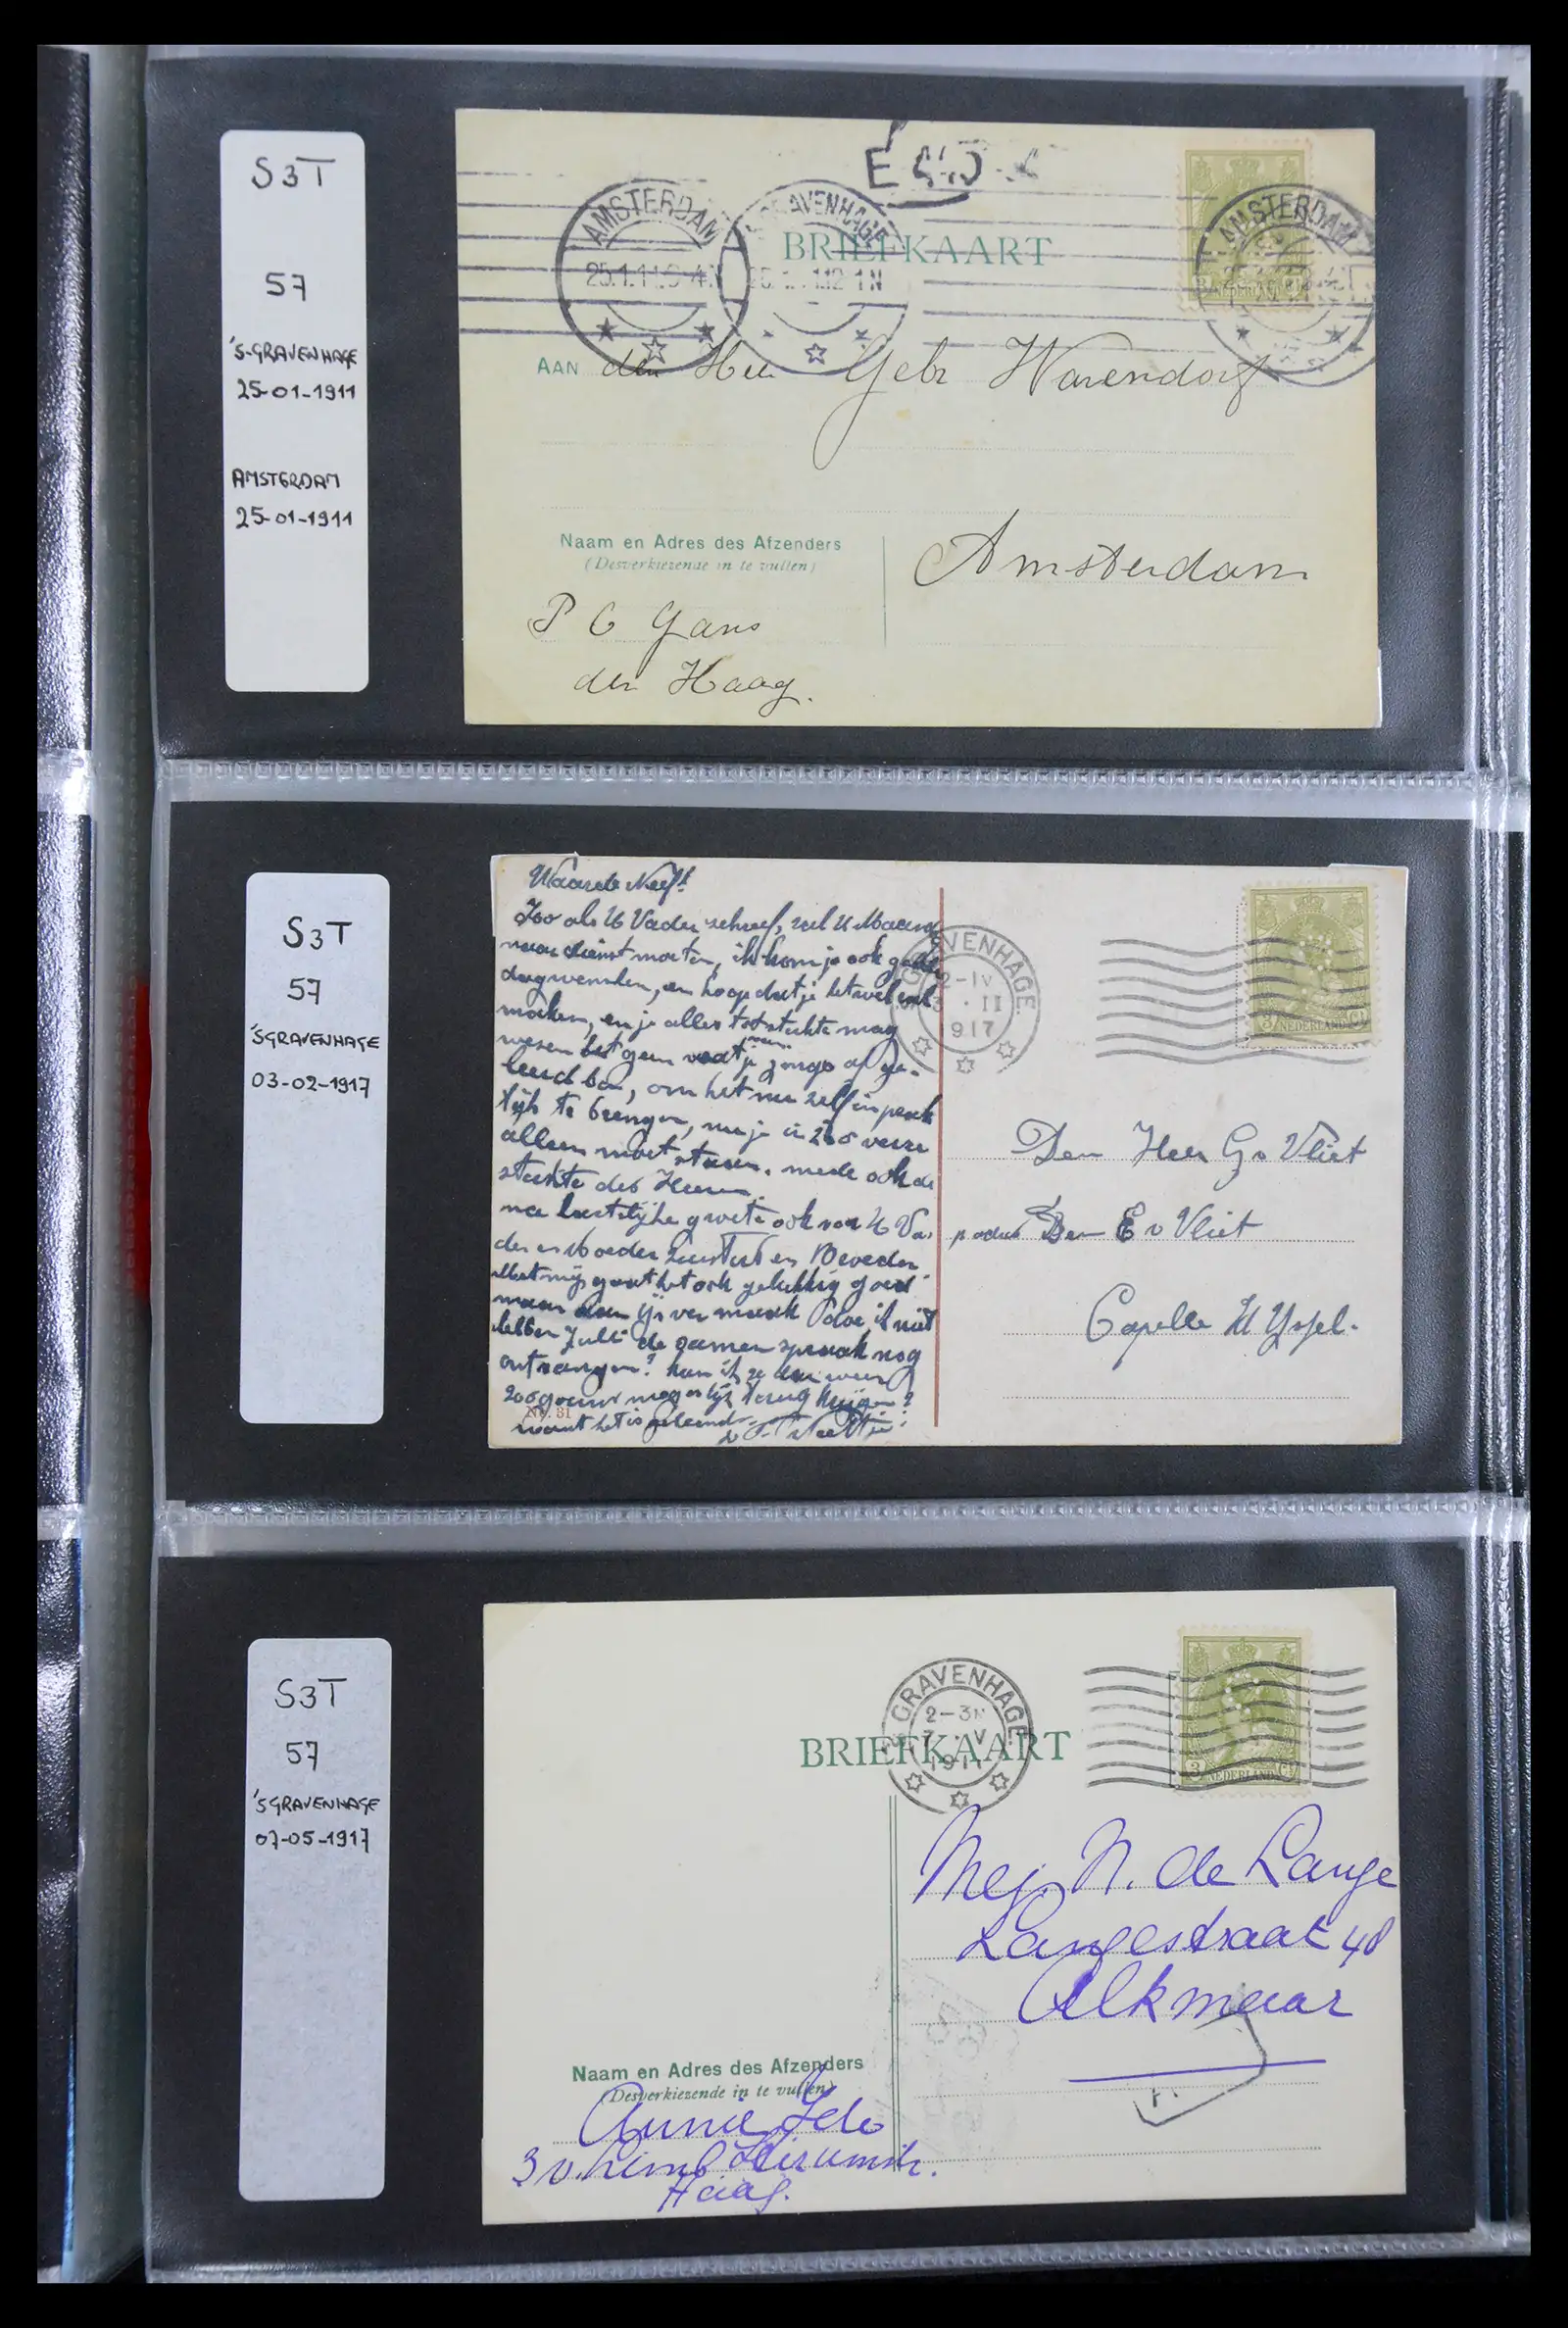 S3T
57
'S-GRAVENHAGE
25-01-1911
AMSTERDAM
25-01-1911
AMSTERDAM
GRAVENHAGE
BRIEFKAART
AMSTERDAM
NEDERLAND
AAN den Heer Gebr Warendorf
Amsterdam
Naam en Adres des Afzenders
(Desverkiezende in te vullen)
P C Gans
den Haag.
S3T
57
'SGRAVENHAGE
03-02-1917
Waarde Neef!
Zoo als U Vader schreef, zal U Maand
voor dienst moeten, ik kom je ook
en hoop dat je het wel zal
maken, en je alles tot sterkte mag
wesen
om het nu zelf in prak
tijk te brengen, nu je in zoo verre
alleen moet staan. mede ook de
sterkte des Heeren.
na hartelijke groete ook voor U Va.
der en Moeder Zuster en Broeder.
Met mij gaat het ook gelukkig goed
maar doe ik niet
hebben Jullie de
ontvangen? kan ik ze dan weer
zoo gauw mogelijk terug krijgen?
No. 31
want het is geleend
GRAVENHAGE
3 II
1917
3 NEDERLAND Ct
Den Heer G v Vliet
p adres Den E v Vliet
Capelle a/d IJssel.
S3T
57
'SGRAVENHAGE
07-05-1917
'S GRAVENHAGE
2-3N
7 V
1917
BRIEFKAART
3 NEDERLAND Ct
Mej. N. de Lange
Langestraat 48
Alkmaar
Naam en Adres des Afzenders
(Desverkiezende in te vullen)
Annie
Haag.